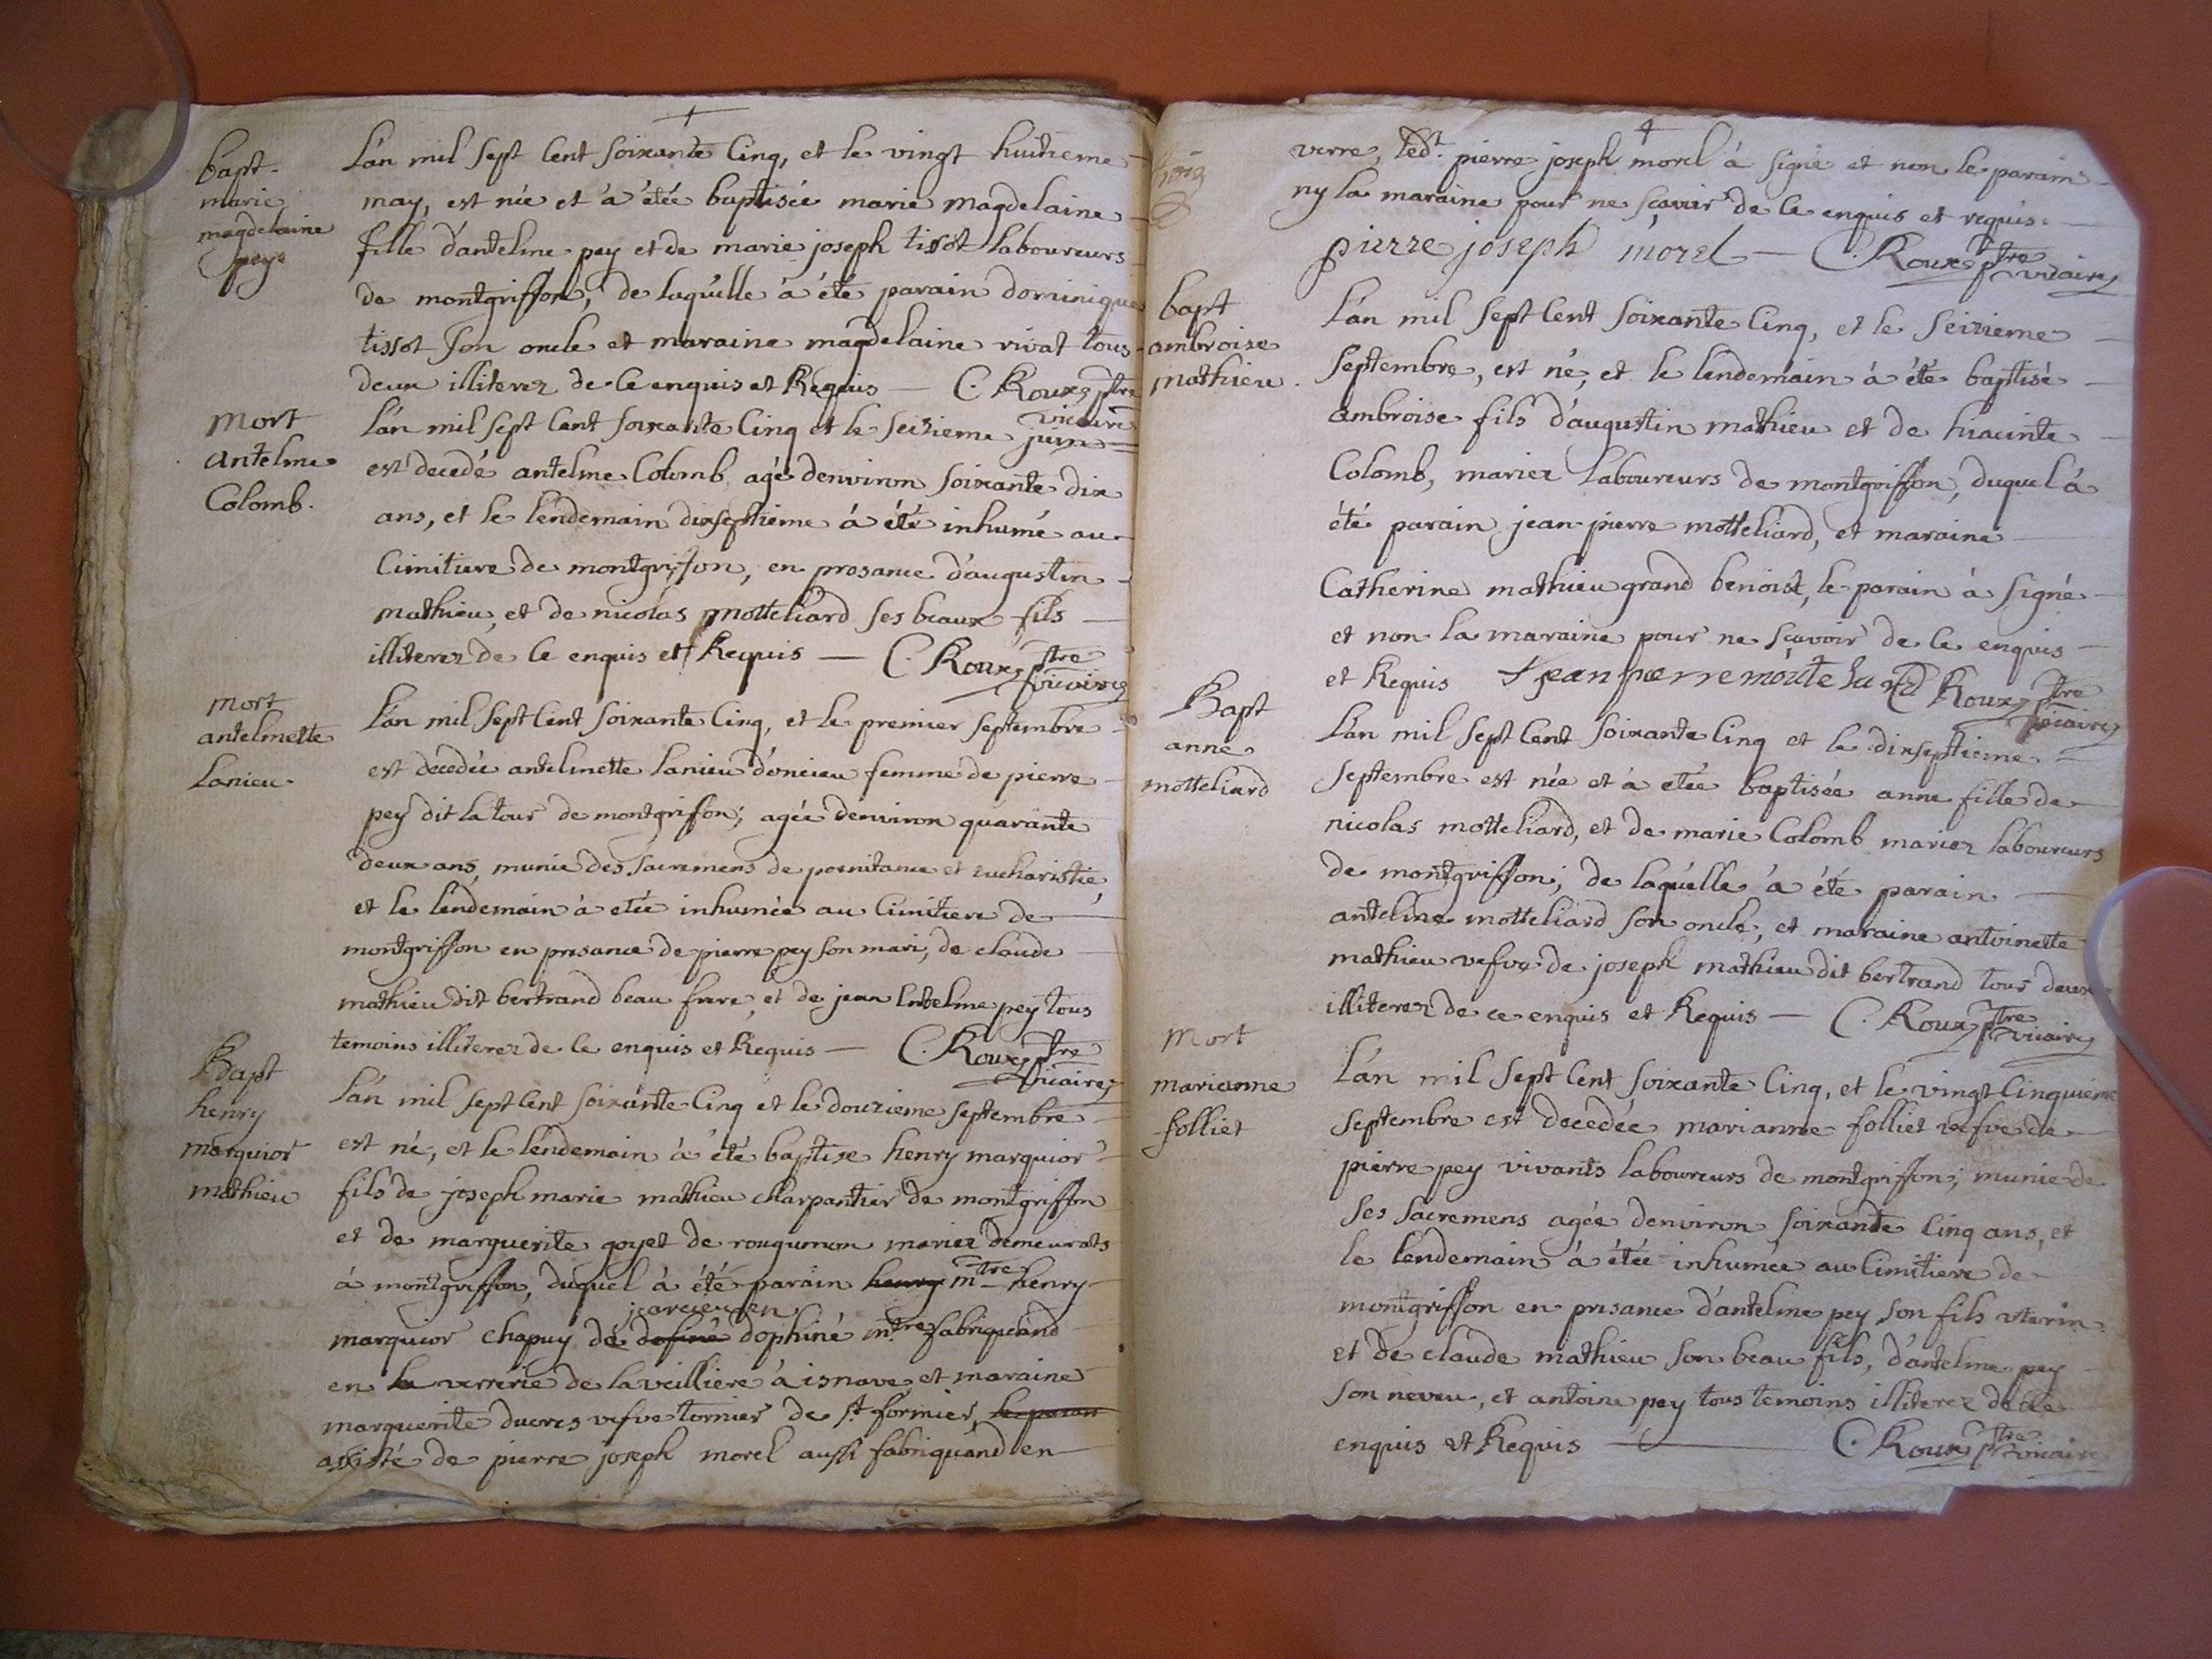 bapt
marie
magdelaine
pey
L'an mil sept Cent soixante Cinq, et le vingt huitieme
may, est née et à étée baptisée marie magdelaine
fille d'antelme pey et de marie joseph tissot laboureurs
de montgriffon, de laquelle à été parain dominique
tissot son oncle et maraine magdelaine vivat tous
deux illiterez de Ce enquis et Requis — C. Roux ptre
vicaire
mort
antelme
Colomb.
L'an mil sept Cent soixante Cinq et le seizieme juin
est decedé antelme Colomb agé denviron soixante dix
ans, et le lendemain dixseptieme à été inhumé au
Cimitiere de montgriffon, en presance d'augustin
mathieu, et de nicolas motteliard ses beaux fils
illiterez de Ce enquis et Requis — C. Roux ptre
vicaire
mort
antelmette
Lanieu
L'an mil sept Cent soixante Cinq, et le premier septembre
est decedée antelmette Lanieu d'oncieu femme de pierre
pey dit la tour de montgriffon, agée denviron quarante
deux ans, munie des sacremens de poenitance et eucharistie,
et le lendemain à etée inhumée au Cimitiere de
montgriffon en presance de pierre pey son mari, de claude
mathieu dit bertrand beau frere, et de jean antelme pey tous
temoins illiterez de Ce enquis et Requis — C. Roux ptre
vicaire
Bapt
henry
marquior
mathieu
L'an mil sept Cent soixante Cinq et le douzieme septembre
est né, et le lendemain à été baptise henry marquior
fils de joseph marie mathieu charpantier de montgriffon
et de marguerite goyet de rougumon mariez demeurats
à montgriffon, duquel à été parain henry mtre henry
jarcieu en
marquior chapuy de dophiné mtre fabriquand
en la verrerie de la veilliere à isnave, et maraine
marguerite ducres vefve tornier de st formier, le parain
assisté de pierre joseph morel aussi fabriquand en
verre, ledt. pierre joseph morel à signé et non le parain
ny la maraine pour ne sçavoir de Ce enquis et requis.
pierre joseph morel — C. Roux ptre vicaire
bapt
ambroise
mathieu
L'an mil sept Cent soixante Cinq, et le seizieme
septembre, est né, et le lendemain à été baptisé
ambroise fils d'augustin mathieu et de hiacinte
Colomb, mariez Laboureurs de montgriffon, duquel à
été parain jean pierre motteliard, et maraine
Catherine mathieu grand benoist, le parain à signé
et non la maraine pour ne sçavoir de Ce enquis
et Requis jean pierre moutelard C Roux ptre
vicaire
Bapt
anne
motteliard
L'an mil sept Cent soixante Cinq et le dixseptieme
septembre est née et à etée baptisée anne fille de
nicolas motteliard, et de marie Colomb mariez laboureurs
de montgriffon, de laquelle à été parain
antelme motteliard son oncle, et maraine antoinette
mathieu vefve de joseph mathieu dit bertrand tous deux
illiterez de ce enquis et Requis — C. Roux ptre vicaire
Mort
marianne
folliet
L'an mil sept Cent soixante Cinq, et le vingt Cinquieme
septembre est decedée marianne folliet vefve de
pierre pey vivants laboureurs de montgriffon, munie de
ses sacremens agée denviron soixante Cinq ans, et
le lendemain à étée inhumée au Cimitiere de
montgriffon en presance d'antelme pey son fils uterin
et de claude mathieu son beau fils, d'antelme pey
son neveu, et antoine pey tous temoins illiterez de Ce
enquis et Requis — C. Roux ptre vicaire